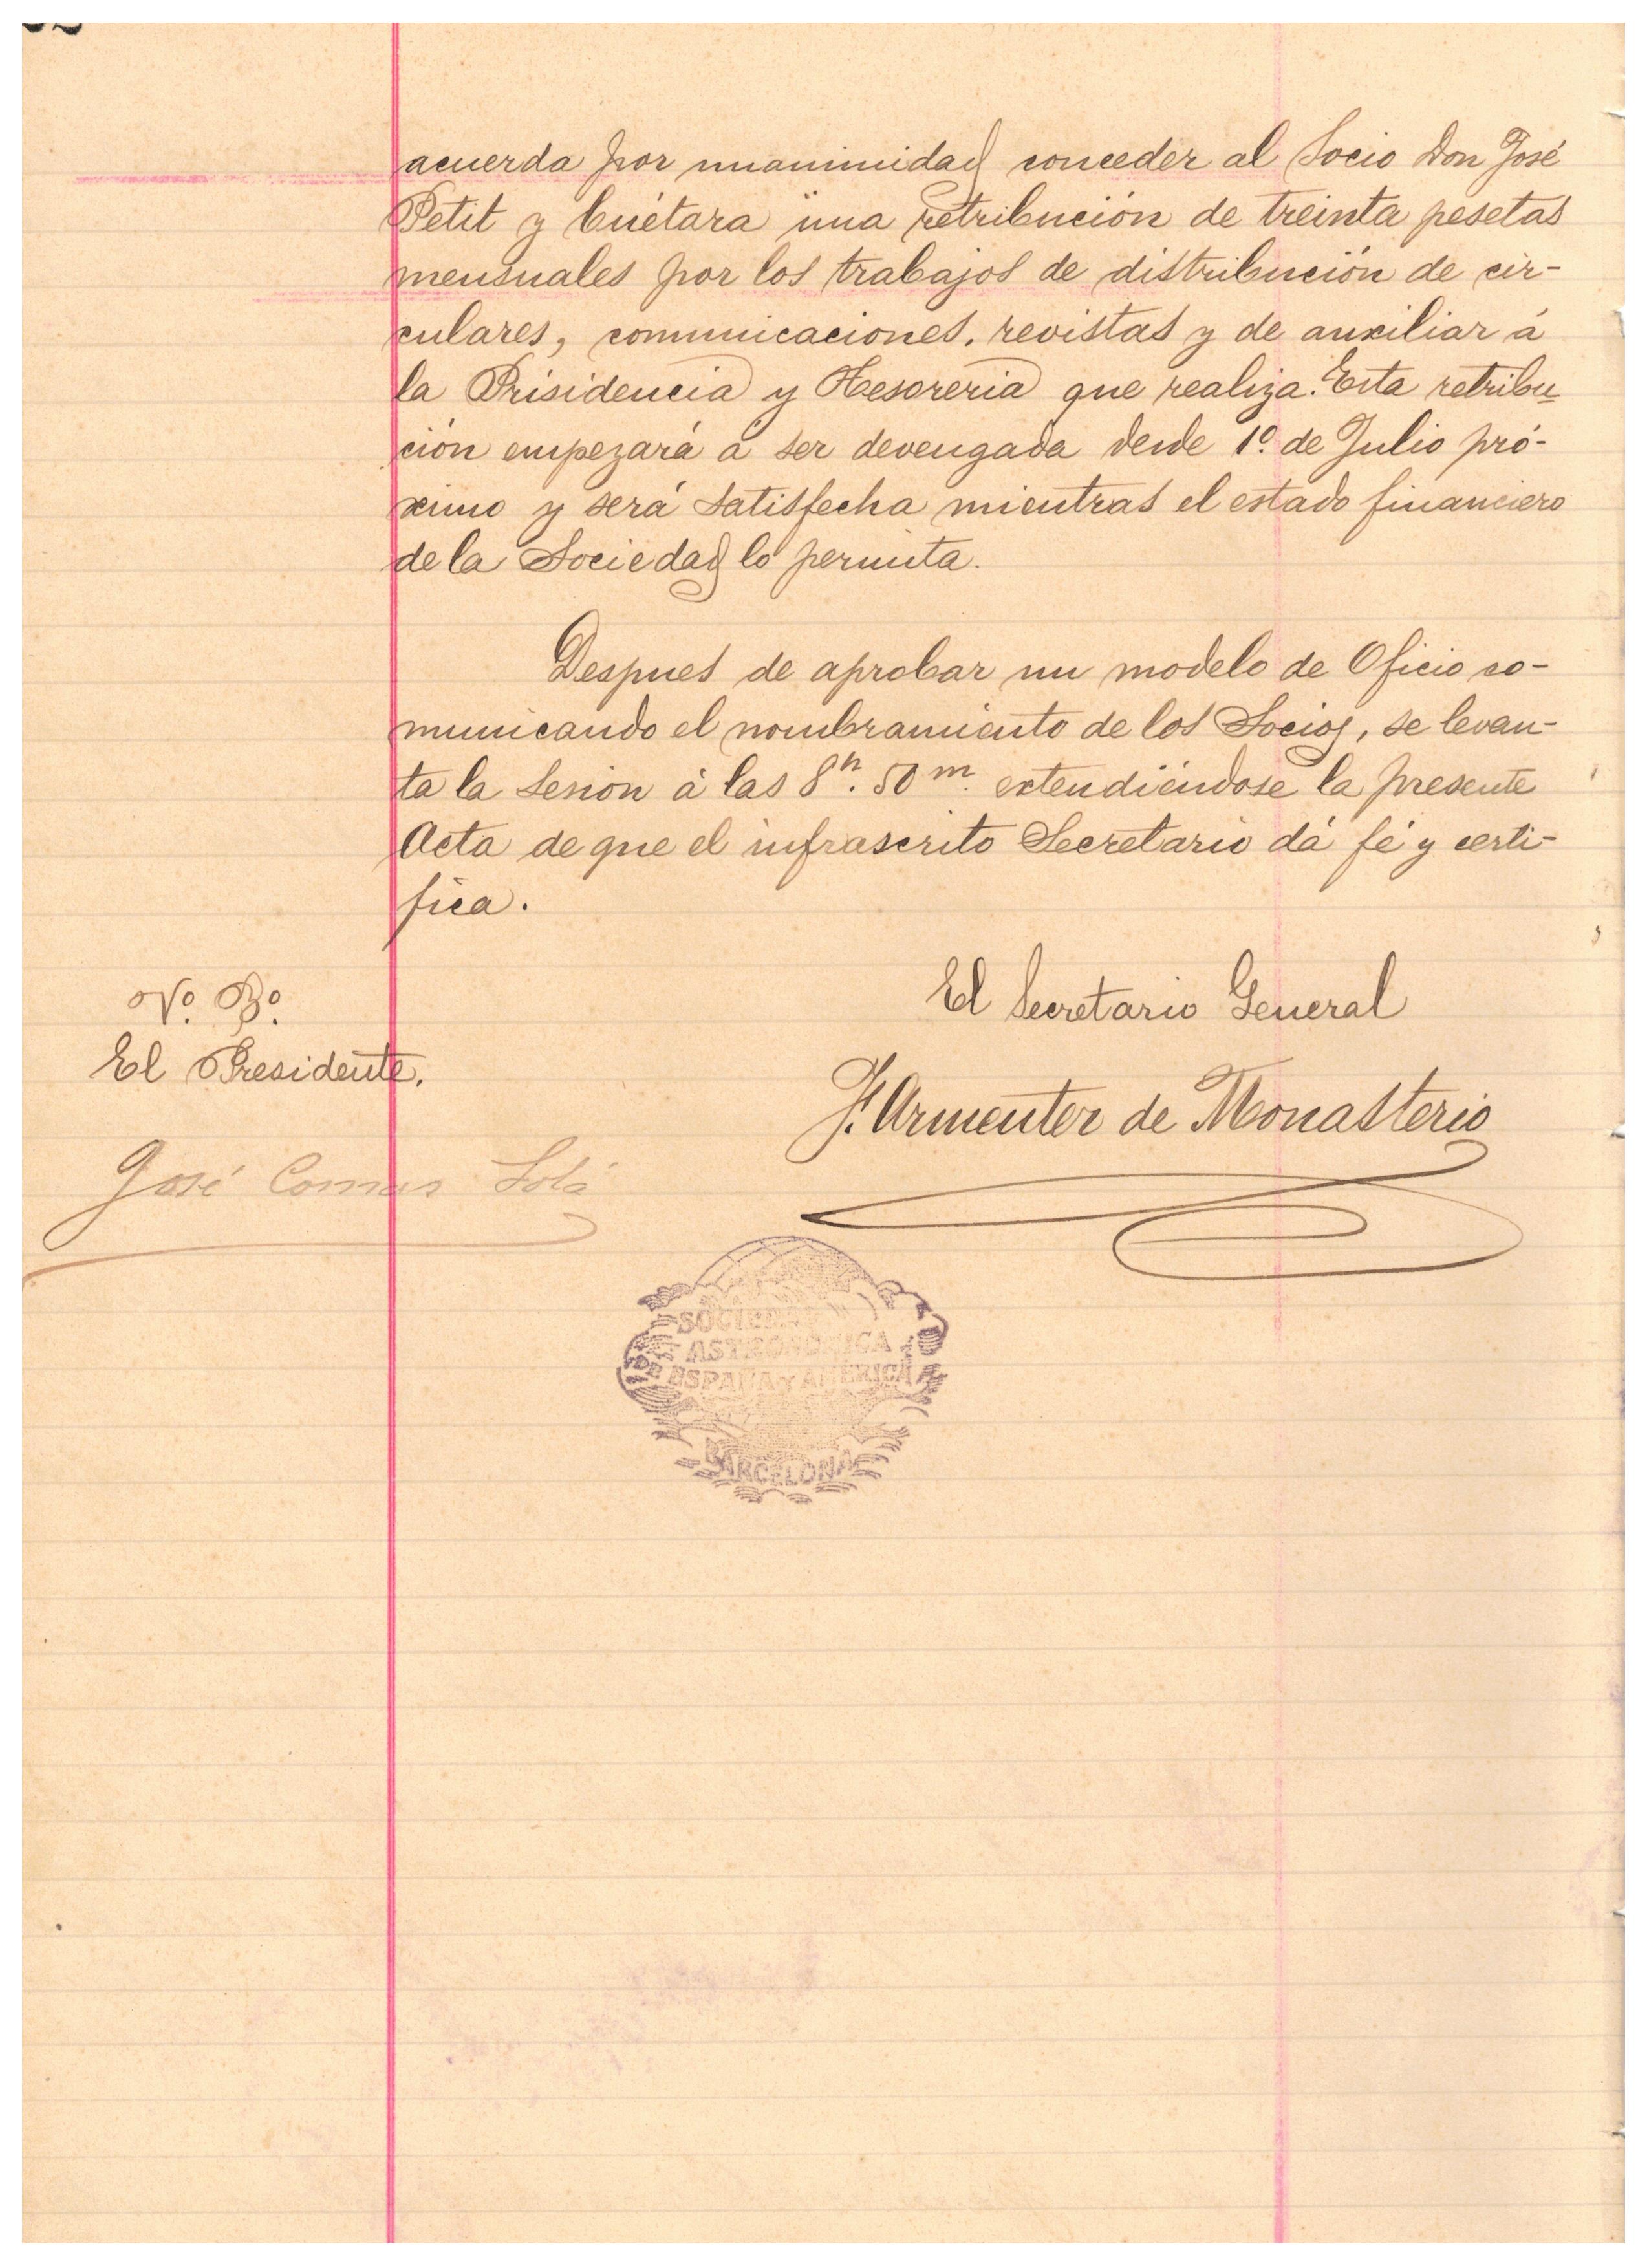 acuerda por unanimidad conceder al Socio Don José
Petit y Cuétara una retribución de treinta pesetas
mensuales por los trabajos de distribución de cir-
culares, comunicaciones, revistas y de auxiliar á
la Prisidencia y Tesoreria que realiza. Esta retribu
ción empezará á ser devengada desde 1º. de Julio pró-
ximo y será satisfecha mientras el estado financiero
de la Sociedad lo permita.
Despues de aprobar un modelo de Oficio co-
municando el nombramiento de los Socios, se levan-
ta la Sesion á las 8h. 50m. extendiéndose la presente
Acta de que el infrascrito Secretario dá fé y certi-
fica.
El Secretario General
Vo. Bo.
El Presidente.
J. Armenter de Monasterio
José Comas Solá
SOCIEDAD
ASTRONOMICA
ESPAÑA Y AMERICA
BARCELONA